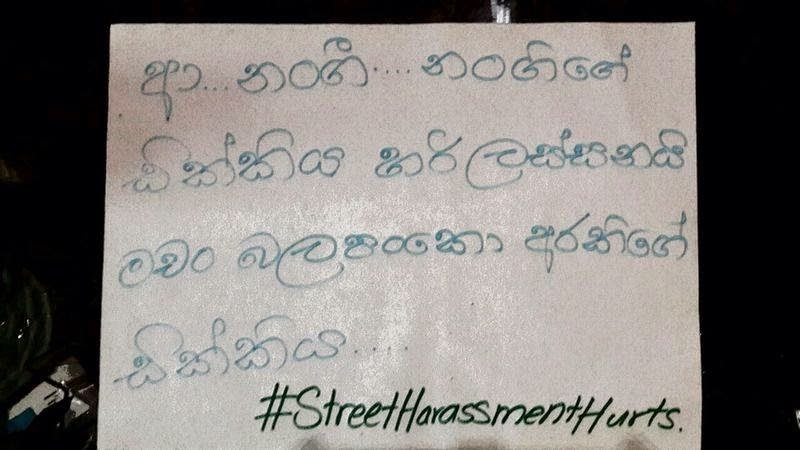 ආ... නංගී.... නංගිගේ
සික්කිය හරි ලස්සනයි
මචං බලපංකො අරකිගේ
සික්කිය....
#StreetHarassmentHurts.